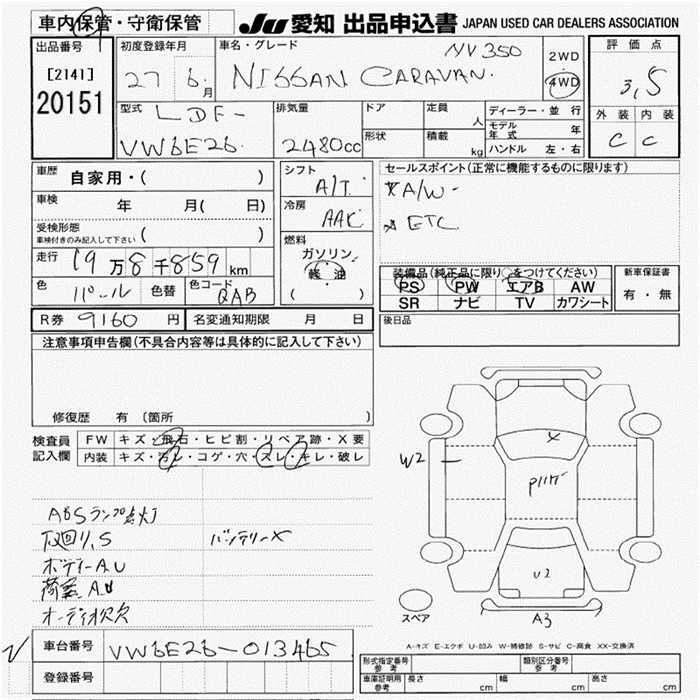 車内保管・守衛保管
JU 愛知 出品申込書 JAPAN USED CAR DEALERS ASSOCIATION
出品番号
[2141]
20151
初度登録年月
27 6月
車名・グレード
NV350
NISSAN CARAVAN.
2WD
4WD
評価点
3,5
外装 内装
C C
型式
LDF-
VW6E26.
排気量
2480cc
ドア
形状
定員
人
積載
kg
ディーラー・並行
モデル年式 年
ハンドル 左・右
車歴
自家用・( )
車検
年 月( 日)
受検形態
車検付きのみ記入して下さい ( )
走行
19万8千859km
色
パール
色替
色コード
QAB
シフト
A/T
冷房
AAC
燃料
ガソリン
軽油
( )
セールスポイント(正常に機能するものに限ります)
A/W-
ETC
装備品(純正品に限り○をつけてください)
PS PW エアB AW
SR ナビ TV カワシート
新車保証書
有・無
R券 9160 円
名変通知期限 月 日
後日品
注意事項申告欄(不具合内容等は具体的に記入して下さい)
修復歴 有 〔箇所
検査員記入欄
FW キズ・飛石・ヒビ割・リペア跡・X要
内装 キズ・汚レ・コゲ・穴・スレ・キレ・破レ
ABSランプ点灯
下廻り.S
バッテリーX
ボディーA.U
荷室A.U
オーディオ欠欠
X
W2
U2
A3
スペア
A-キズ E-エクボ U-凹み W-補修跡 S-サビ C-腐食 XX-交換済
車台番号 VW6E26-013465
登録番号
形式指定番号参考
類別区分番号参考
車庫証明用参考
長さ cm
幅 cm
高さ cm